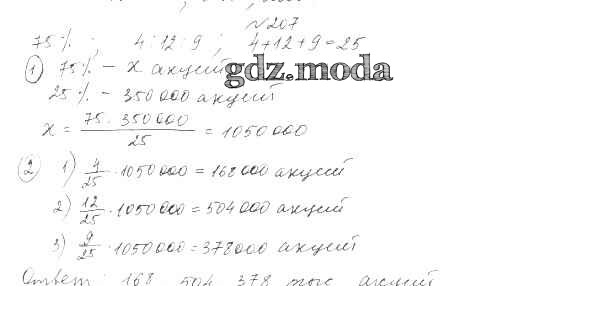 №207
75% ; 4:12:9 ; 4+12+9=25
① 75% – x акций
gdz.moda
25% – 350000 акций
x = 75 · 350000 / 25 = 1050000
② 1) 4/25 · 1050000 = 168000 акций
2) 12/25 · 1050000 = 504000 акций
3) 9/25 · 1050000 = 378000 акций
Ответ: 168 504 378 тыс акций